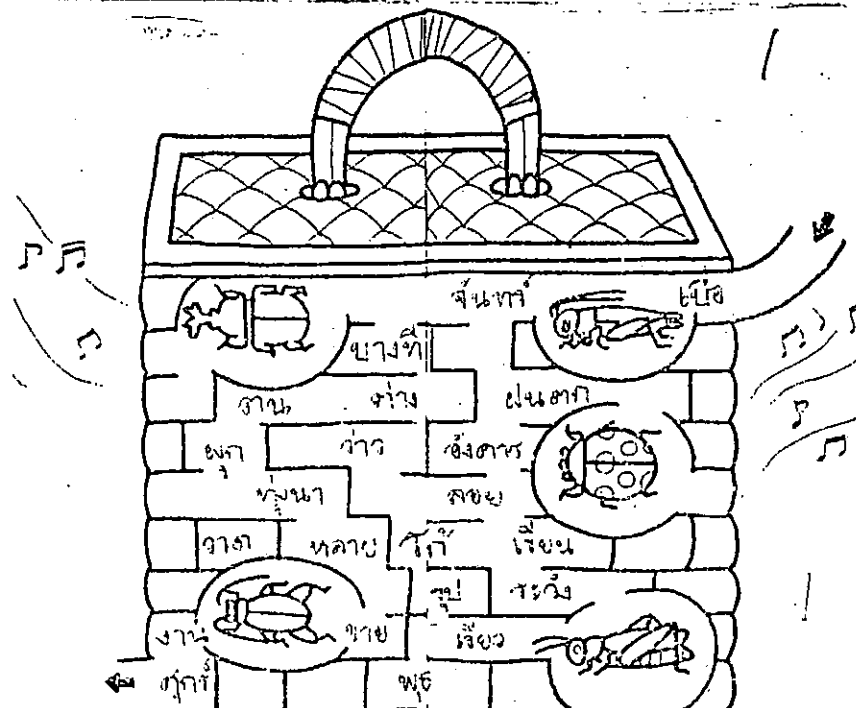 จันทร์ เบื่อ
บางที
กว่าง ฝนตก
ผูก ว่าว อังคาร
ทุ่งนา ลอย
วาด หลาย เรียน
รูป ระวัง
งาน ขาย เรียว
ศุกร์ พุธ